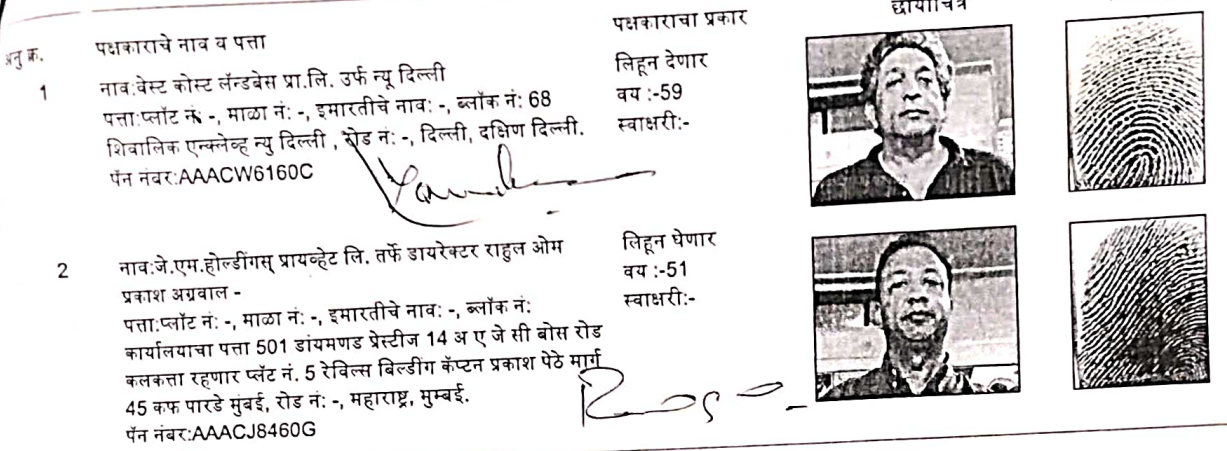 अनु क्र. पक्षकाराचे नाव व पत्ता पक्षकाराचा प्रकार छायाचित्र
1 नाव:वेस्ट कोस्ट लॅन्डबेस प्रा.लि. उर्फ न्यू दिल्ली लिहून देणार
पत्ता:प्लॉट नं: -, माळा नं: -, इमारतीचे नाव: -, ब्लॉक नं: 68 वय :-59
शिवालिक एन्क्लेव्ह न्यु दिल्ली , रोड नं: -, दिल्ली, दक्षिण दिल्ली. स्वाक्षरी:-
पॅन नंबर:AAACW6160C
2 नाव:जे.एम.होल्डींगस् प्रायव्हेट लि. तर्फे डायरेक्टर राहुल ओम लिहून घेणार
प्रकाश अग्रवाल - वय :-51
पत्ता:प्लॉट नं: -, माळा नं: -, इमारतीचे नाव: -, ब्लॉक नं: स्वाक्षरी:-
कार्यालयाचा पत्ता 501 डांयमणड प्रेस्टीज 14 अ ए जे सी बोस रोड
कलकत्ता रहणार प्लॅट नं. 5 रेविल्स बिल्डींग कॅप्टन प्रकाश पेठे मार्ग
45 कफ पारडे मुंबई, रोड नं: -, महाराष्ट्र, मुम्बई.
पॅन नंबर:AAACJ8460G